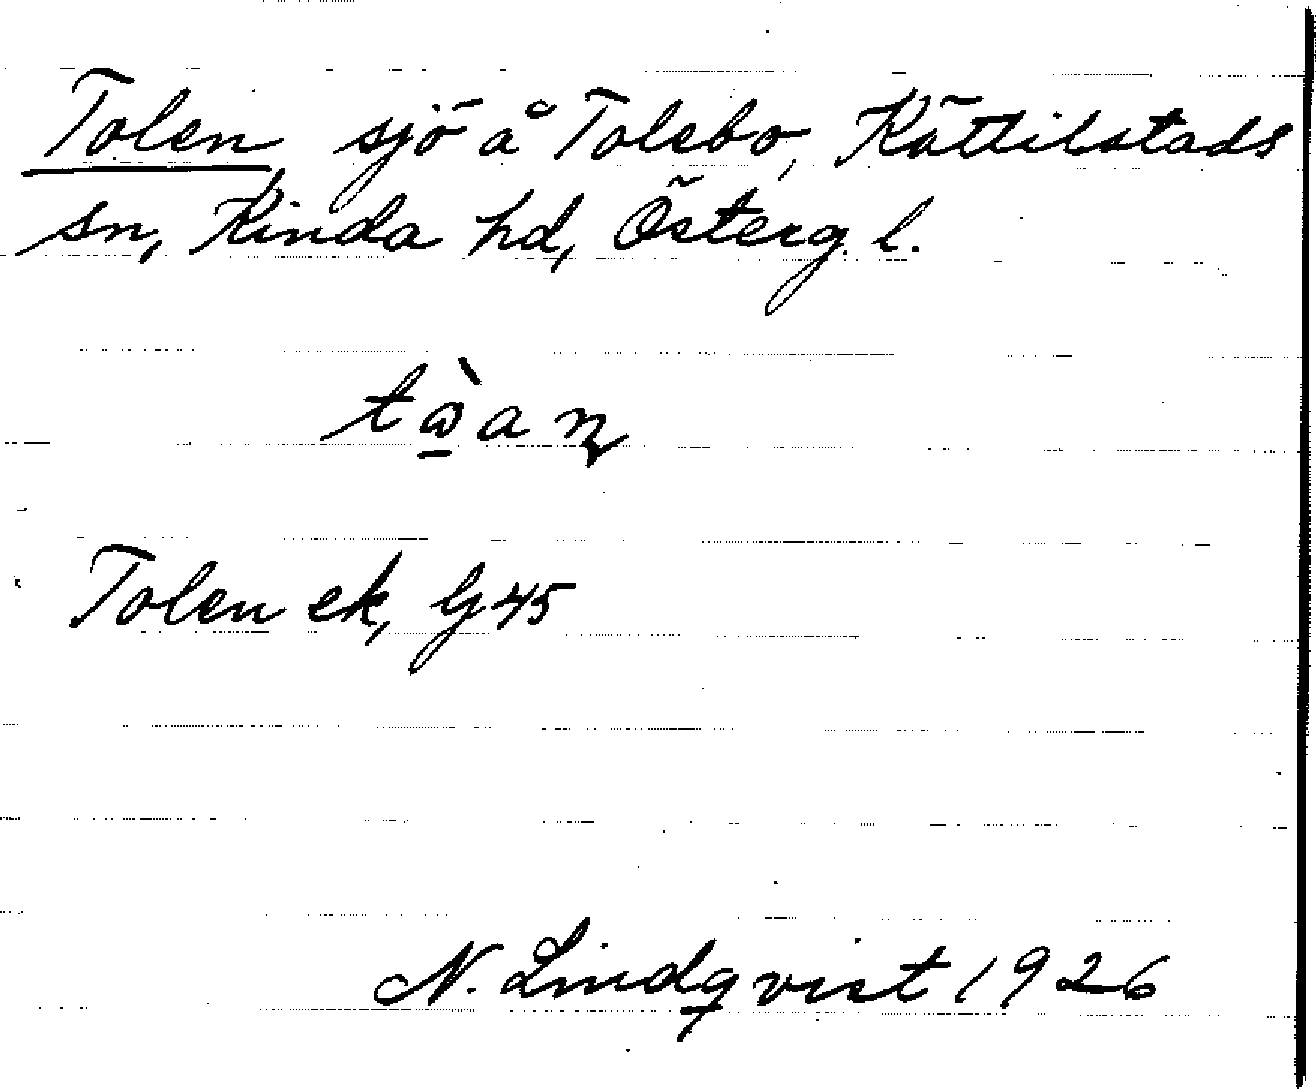 Tolen sjö å Tolebo, Kättilstads
sn, Kinda hd, Österg. l.
Tolen ek, G 45
N. Lindqvist 1926